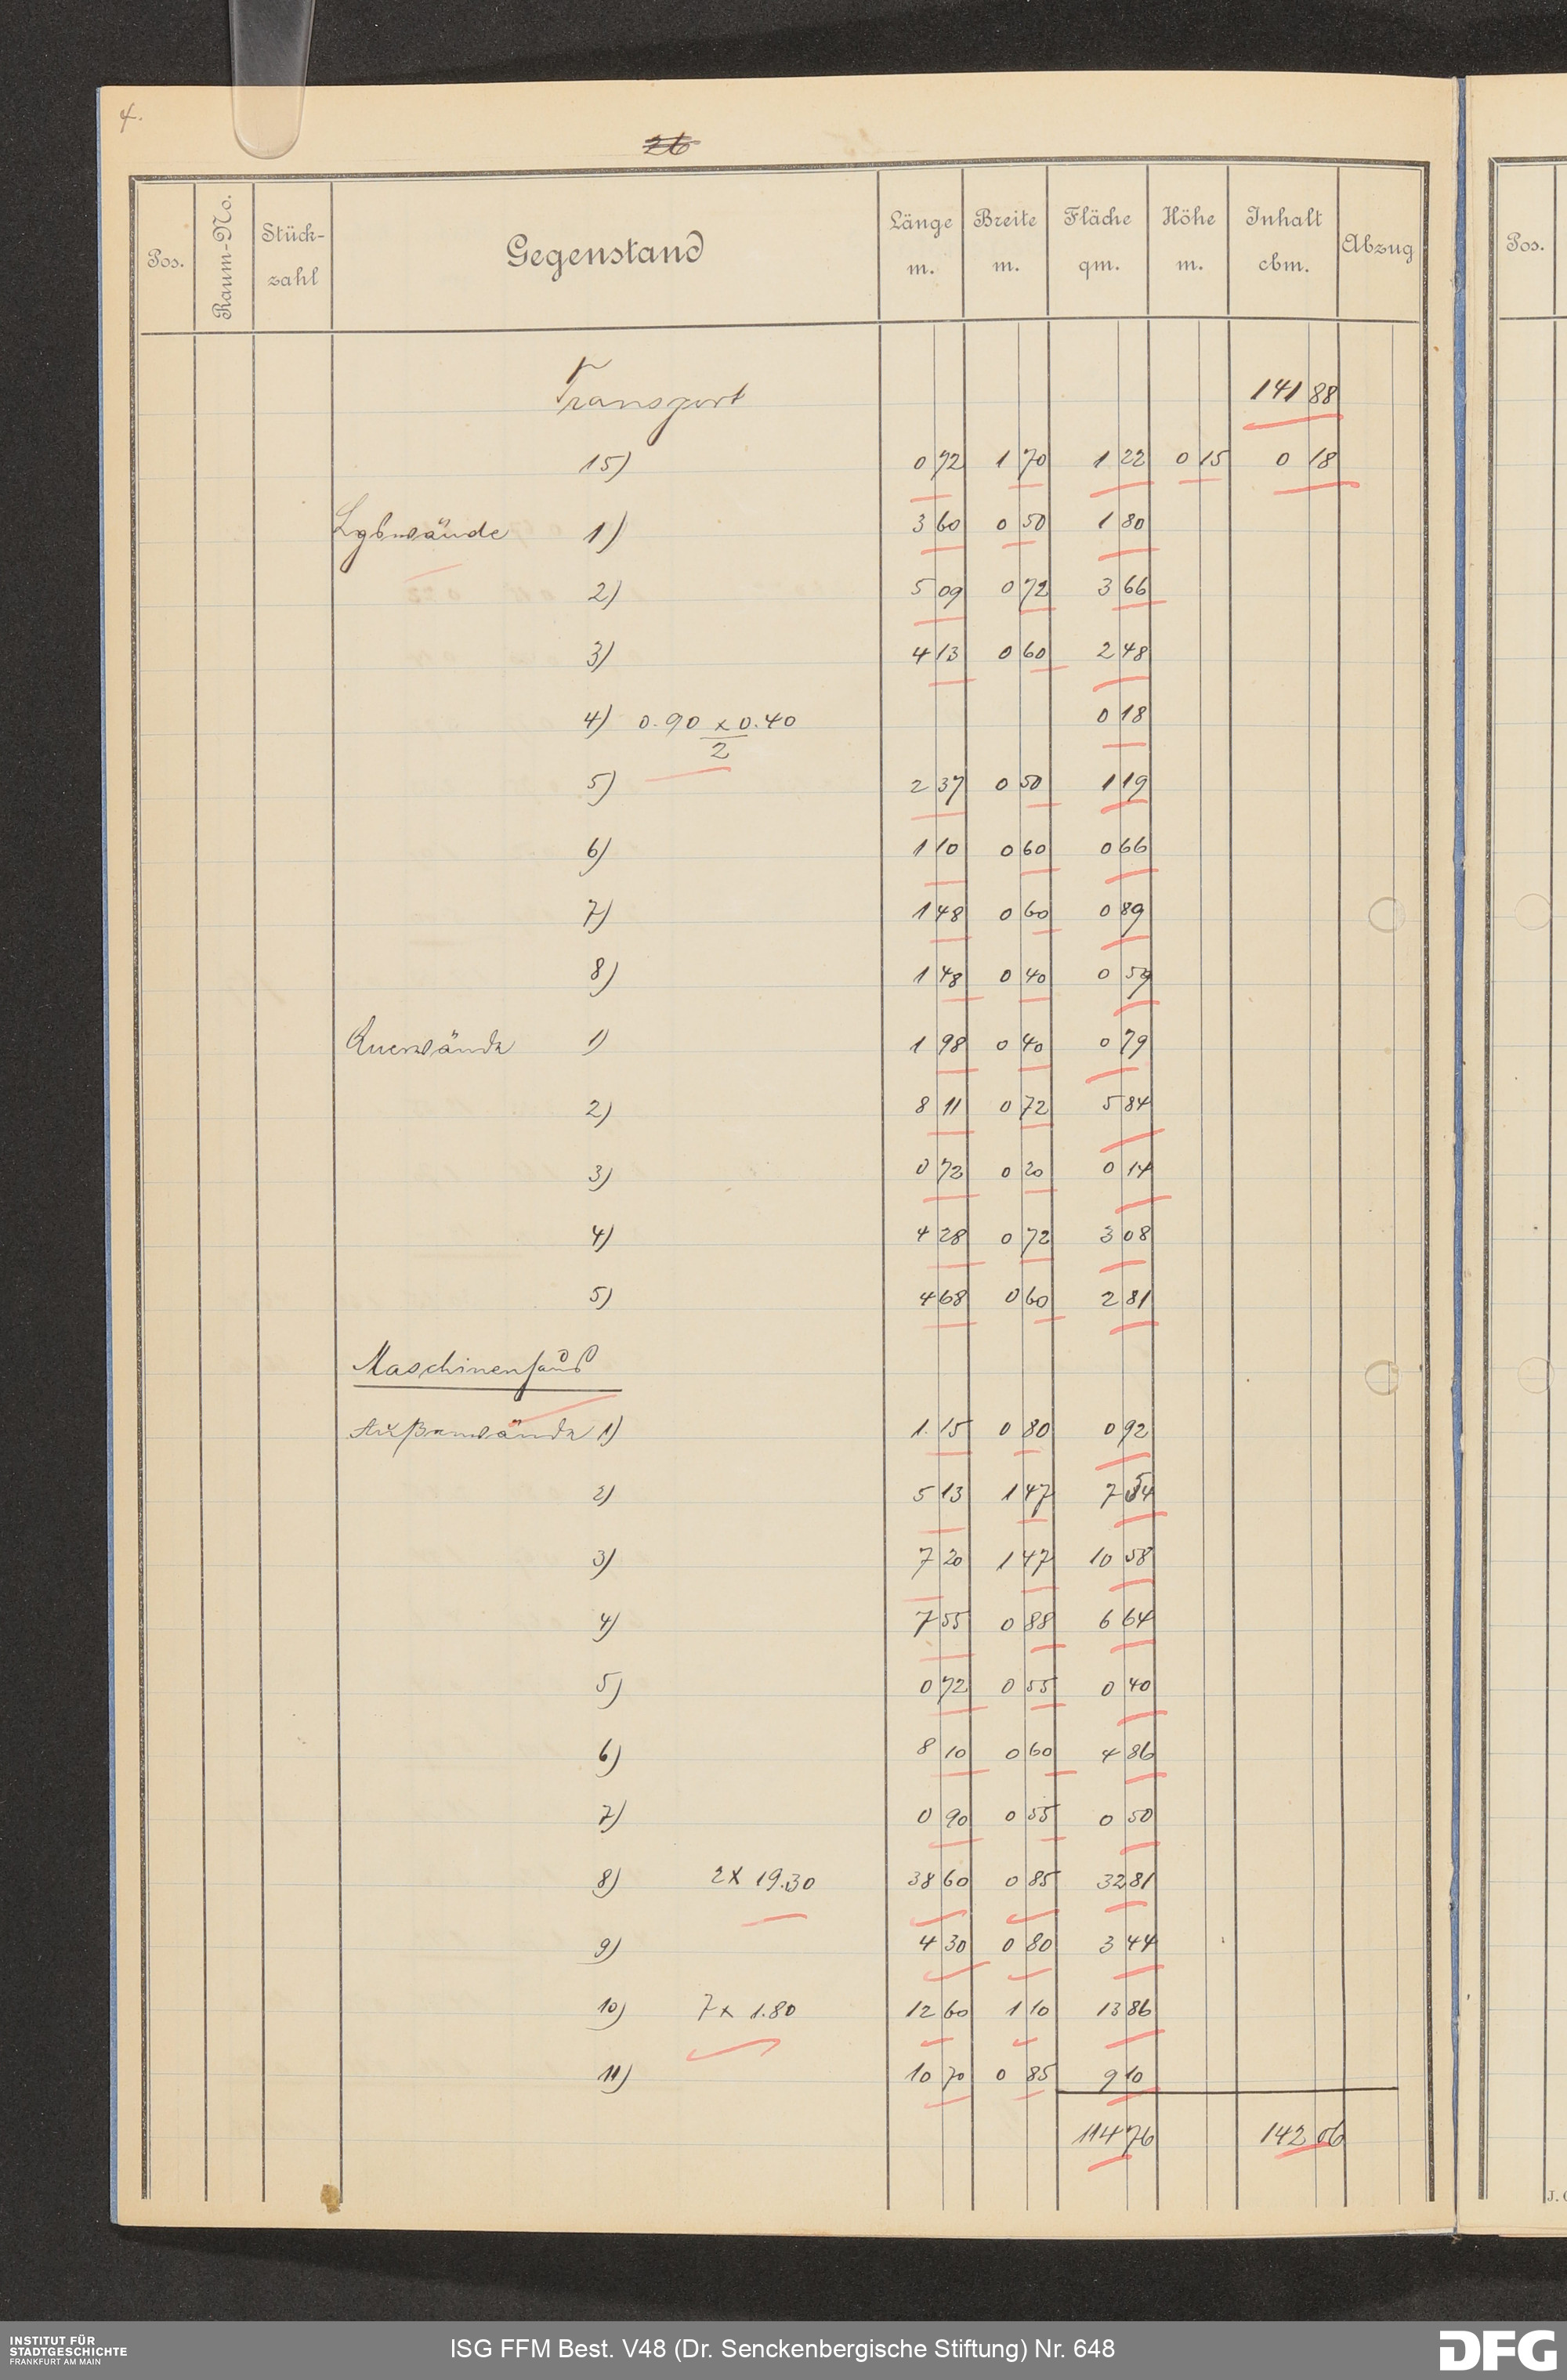 4.
26
Pos. Raum-No. Stück-zahl Gegenstand Länge m. Breite m. Fläche qm. Höhe m. Inhalt cbm. Abzug Pos.
Transport 141 88
15) 0 72 1 70 1 22 0 15 0 18
Lgswände 1) 3 60 0 50 1 80
2) 5 09 0 72 3 66
3) 4 13 0 60 2 48
4) 0.90 x 0.40 0 18
2
5) 2 37 0 50 1 19
6) 1 10 0 60 0 66
7) 1 48 0 60 0 89
8) 1 48 0 40 0 59
Querwände 1) 1 98 0 40 0 79
2) 8 11 0 72 5 84
3) 0 72 0 20 0 14
4) 4 28 0 72 3 08
5) 4 68 0 60 2 81
Maschinenhaus
Außenwände 1) 1.15 0 80 0 92
2) 5 13 1 47 7 54
3) 7 20 1 47 10 58
4) 7 55 0 88 6 64
5) 0 72 0 55 0 40
6) 8 10 0 60 4 86
7) 0 90 0 55 0 50
8) 2 x 19.30 38 60 0 85 32 81
9) 4 30 0 80 3 44
10) 7 x 1.80 12 60 1 10 13 86
11) 10 70 0 85 9 10
114 76 142 06
INSTITUT FÜR
STADTGESCHICHTE
FRANKFURT AM MAIN
ISG FFM Best. V48 (Dr. Senckenbergische Stiftung) Nr. 648
DFG